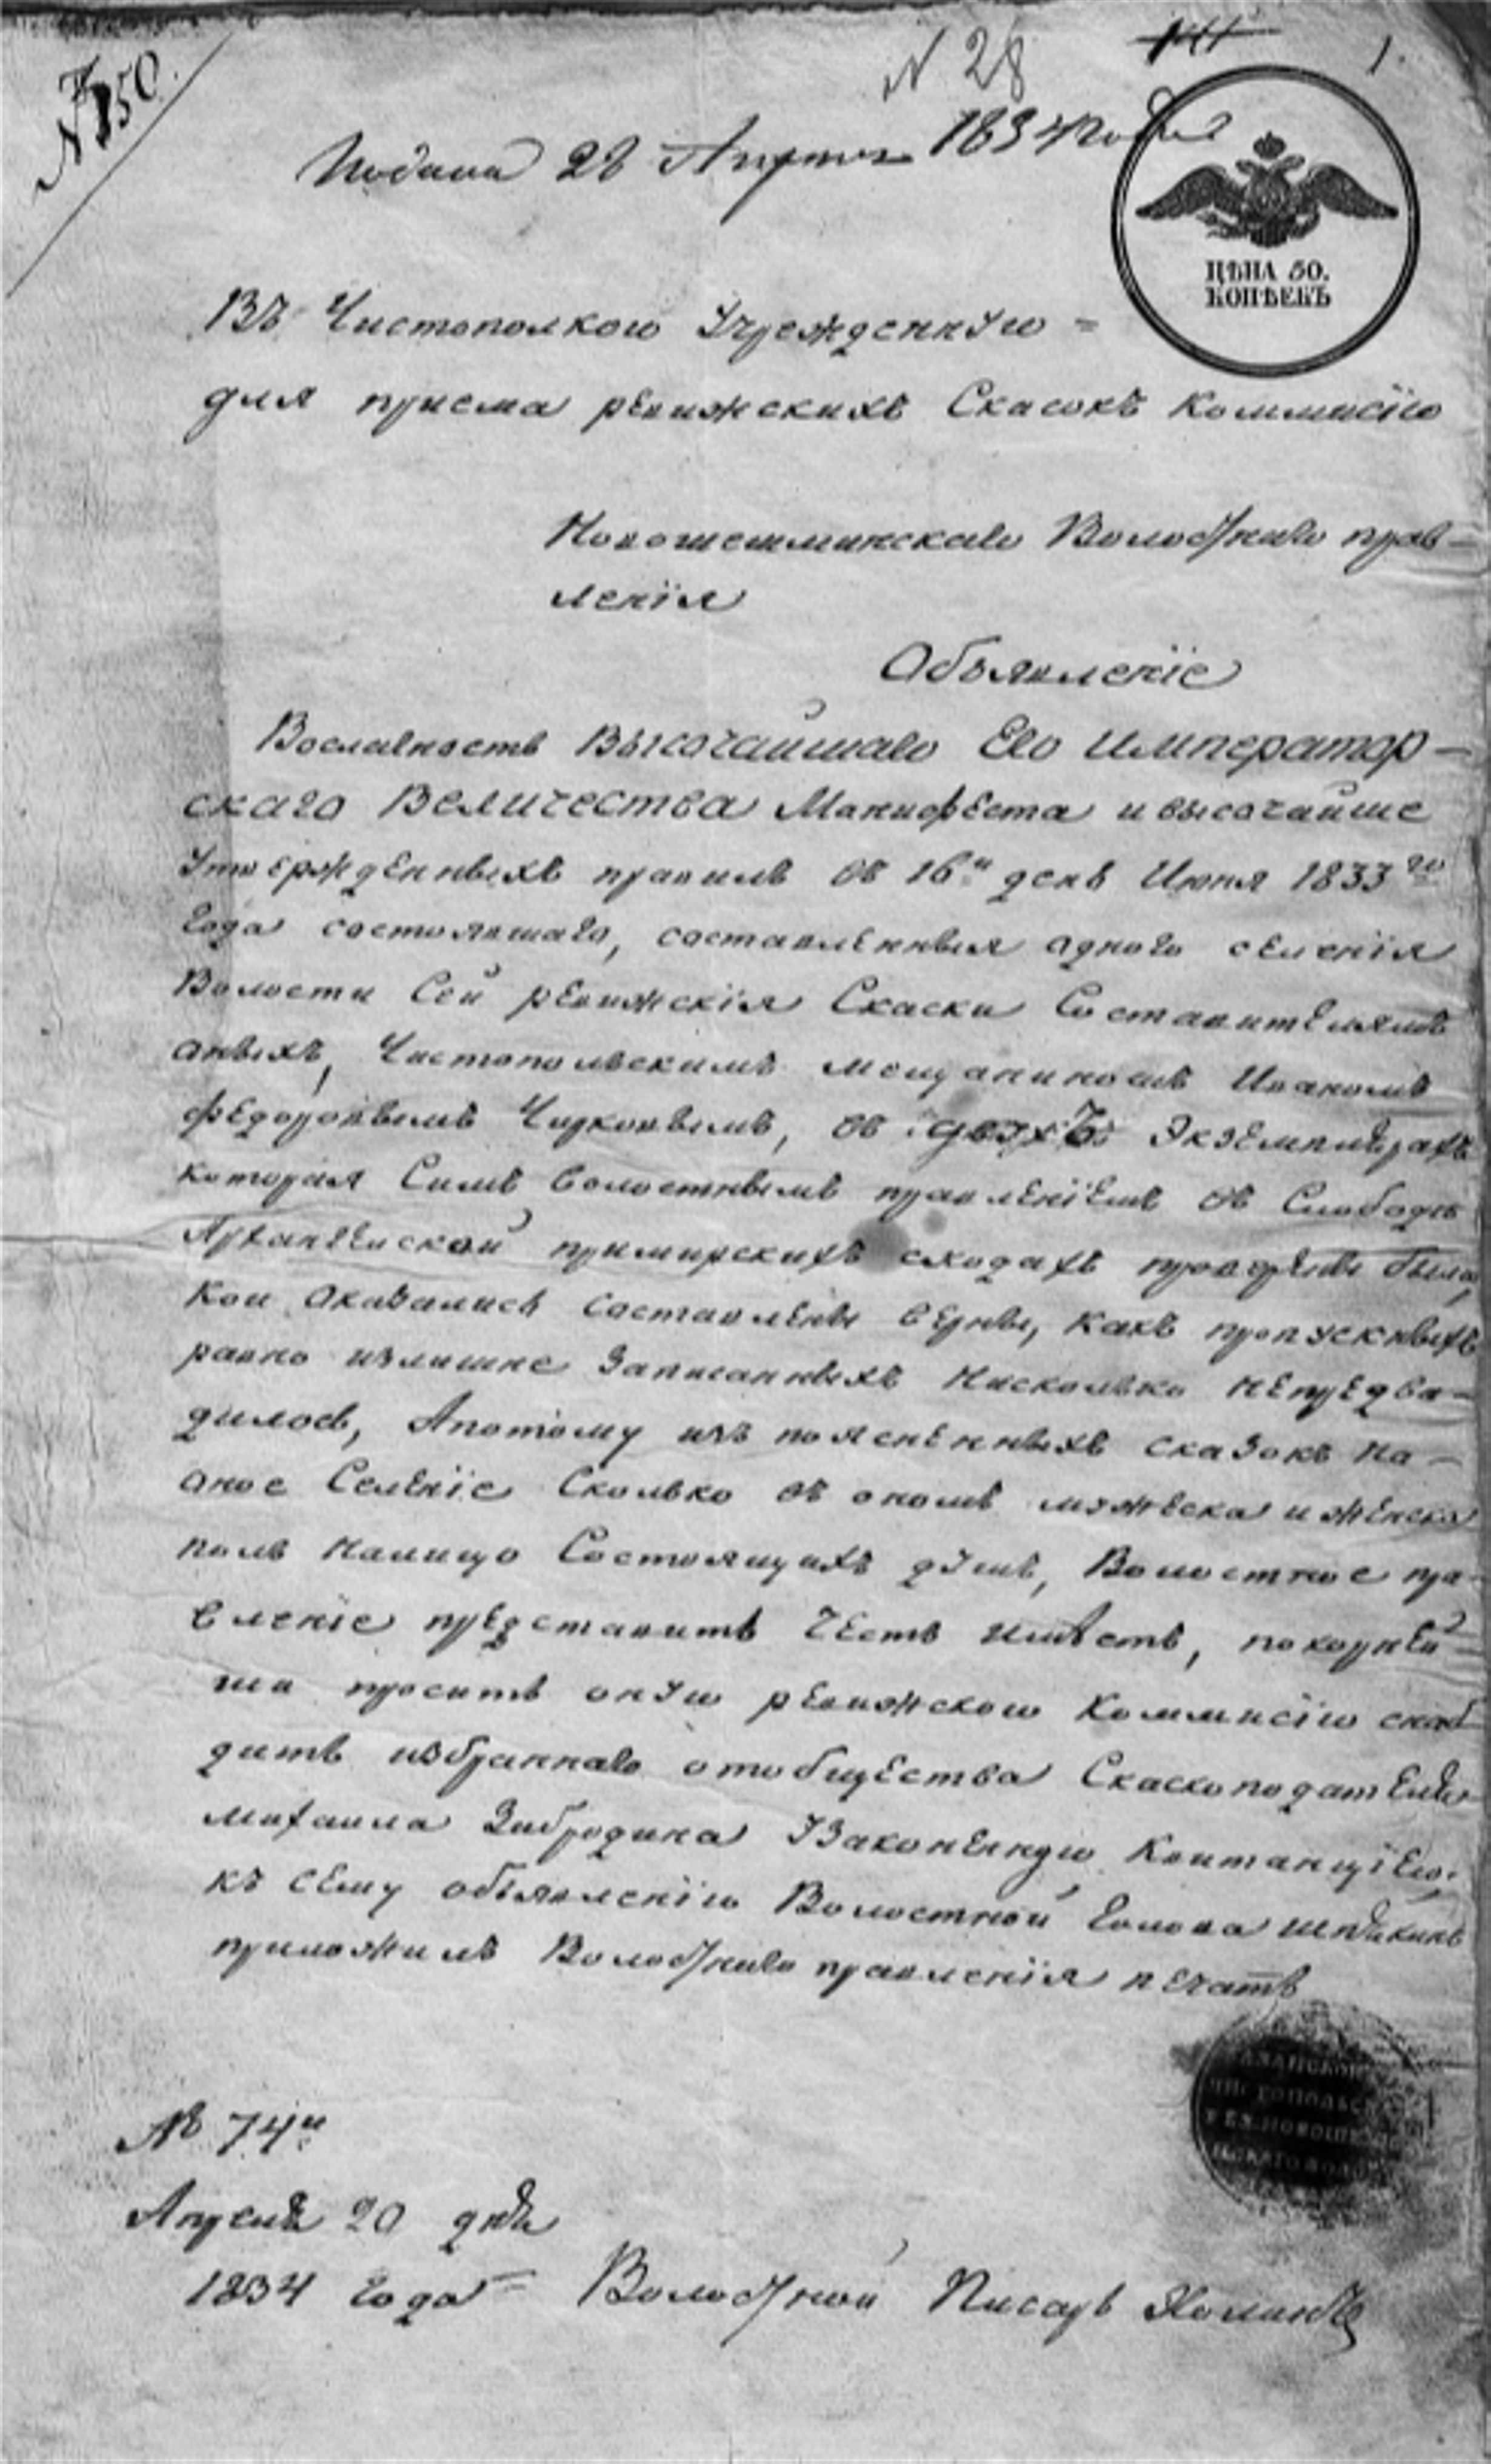 № 150.
№ 28
1.
Подана 28 Апреля 1834 года
ЦѢНА 50.
КОПѢЕКЪ
Въ Чистополкою Учрежденную =
для приема ревижскихъ Скасокъ Коммисїю
Новошешминскаго Волостнаго прав-
ленїя
Объявленїе
Вославность Высочайшаго Его Император-
скаго Величества Манифеста и высочайше
Утвержденныхъ правилъ въ 16й день Июня 1833го
года состоявшаго, составленныя одного селенїя
Волости Сей ревижскїя Скаски Составителямъ
оныхъ, Чистопольскимъ мещаниномъ Иваномъ
Федоровымъ Чирковымъ, въ двухъ Экземплѣрахъ
которая Симъ волостнымъ правленїемъ въ Слободѣ
Архангелской примирскихъ сходахъ проверены были,
Кои оказались составлены верны, какъ пропускныхъ
равно излишне записанныхъ Нисколько непредви-
дилось, Апотому изъ поясненныхъ сказокъ на-
оное Селенїе Сколько въ ономъ мужеска и женска
полъ налицо Состоящихъ душъ, Волостное пра-
вленїе представить Честь имѣетъ, покорней-
ши проситъ оную ревижскою Коммисїю снаб-
дить избраннаго отобщества Скаскоподателя
Михаила Забродина Узаконенную Квитанцїею.
къ сему объявленїю Волостной голова
приложилъ Волостнаго правленїя печать
№ 74й
Апреля 20 дня
1834 года Волостной Писарь